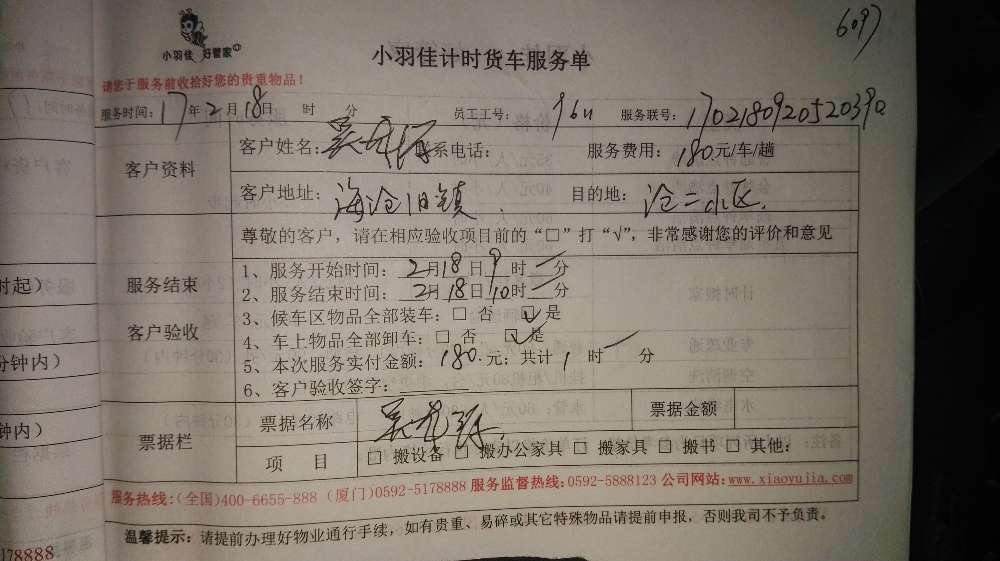 6097
小羽佳 好管家
小羽佳计时货车服务单
请您于服务前收拾好您的贵重物品！
服务时间：17年2月18日 时 分 员工工号： 服务联号：
客户资料
客户姓名：吴 联系电话： 服务费用：180元/车/趟
客户地址：海沧旧镇 目的地：沧二小区
尊敬的客户，请在相应验收项目前的“□”打“√”，非常感谢您的评价和意见
服务结束
客户验收
1、服务开始时间：2月18日9时一分
2、服务结束时间：2月18日10时一分
3、候车区物品全部装车：□ 否 ☑ 是
4、车上物品全部卸车：□ 否 ☑ 是
5、本次服务实付金额：180.元；共计1时一分
6、客户验收签字：
票据栏
票据名称 票据金额
项 目 □ 搬设备 □ 搬办公家具 □ 搬家具 □ 搬书 □ 其他：
服务热线：（全国）400-6655-888（厦门）0592-5178888 服务监督热线：0592-5888123 公司网站：www.xiaoyujia.com
温馨提示：请提前办理好物业通行手续，如有贵重、易碎或其它特殊物品请提前申报，否则我司不予负责。
时起）
分钟内）
钟内）
178888.